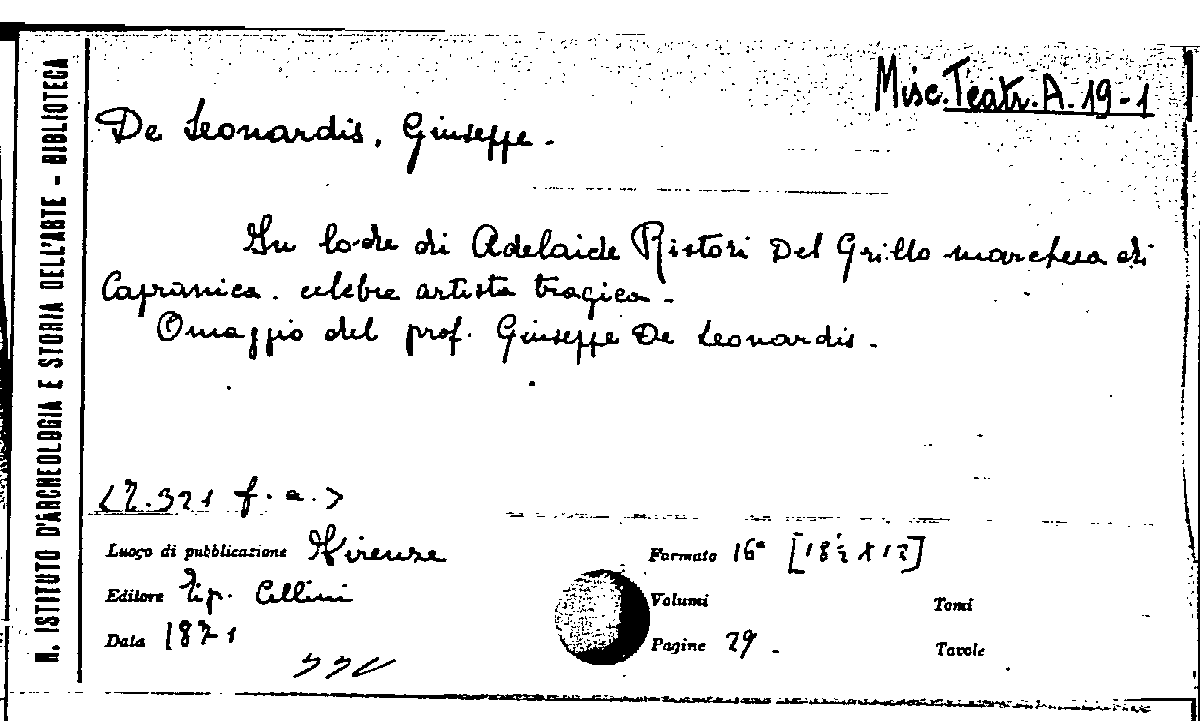 Misc. Teatr. A. 19-1
De Leonardis, Giuseppe.
In lode di Adelaide Ristori Del Grillo marchesa di
Capranica. celebre artista tragica.
Omaggio del prof. Giuseppe De Leonardis.
f. a.>
Luogo di pubblicazione Firenze
Formato 16° [18½ x 12]
Editore Tip. Cellini
Volumi
Tomi
Data 1871
Pagine 29.
Tavole
N. ISTITUTO D'ARCHEOLOGIA E STORIA DELL'ARTE - BIBLIOTECA